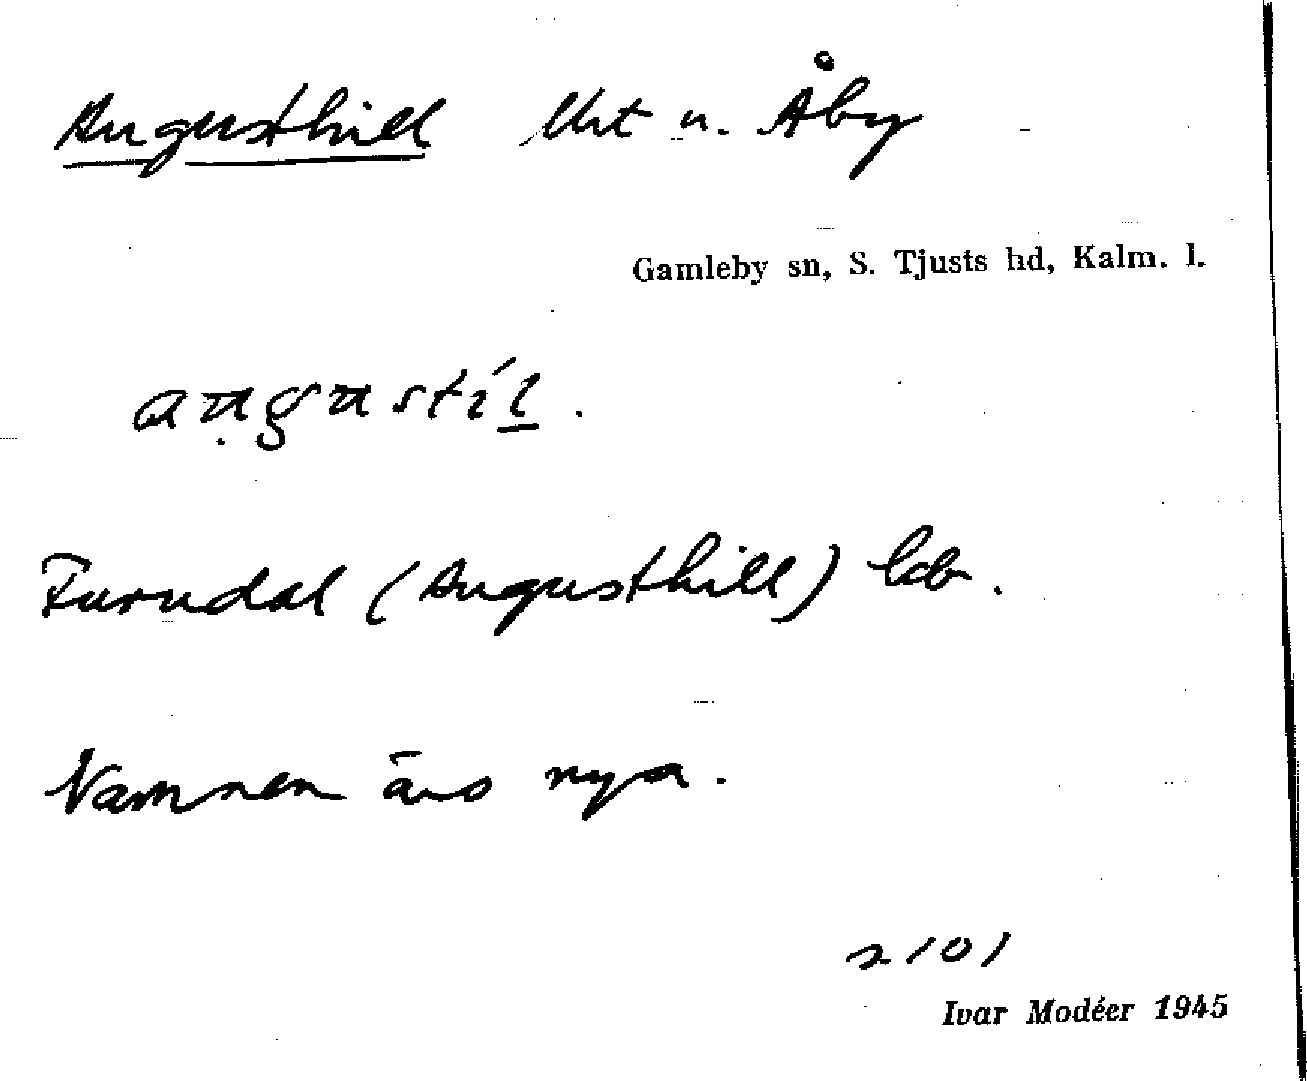 Augusthill Urt u. Åby
Gamleby sn, S. Tjusts hd, Kalm. l.
augustíl.
Furudal (Augusthill) lcb.
Namnen äro nya.
2101
Ivar Modéer 1945